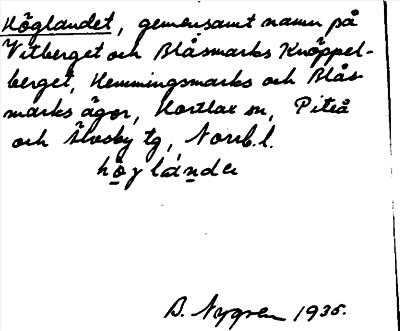 Höglandet, gemensamt namn på
Vitberget och Blåsmarks Knöppel-
berget, Hemmingsmarks och Blås-
marks ägor, Hortlax sn, Piteå
och Älvsby tg, Norrb. l.
höglánde
B. Nygren 1935.